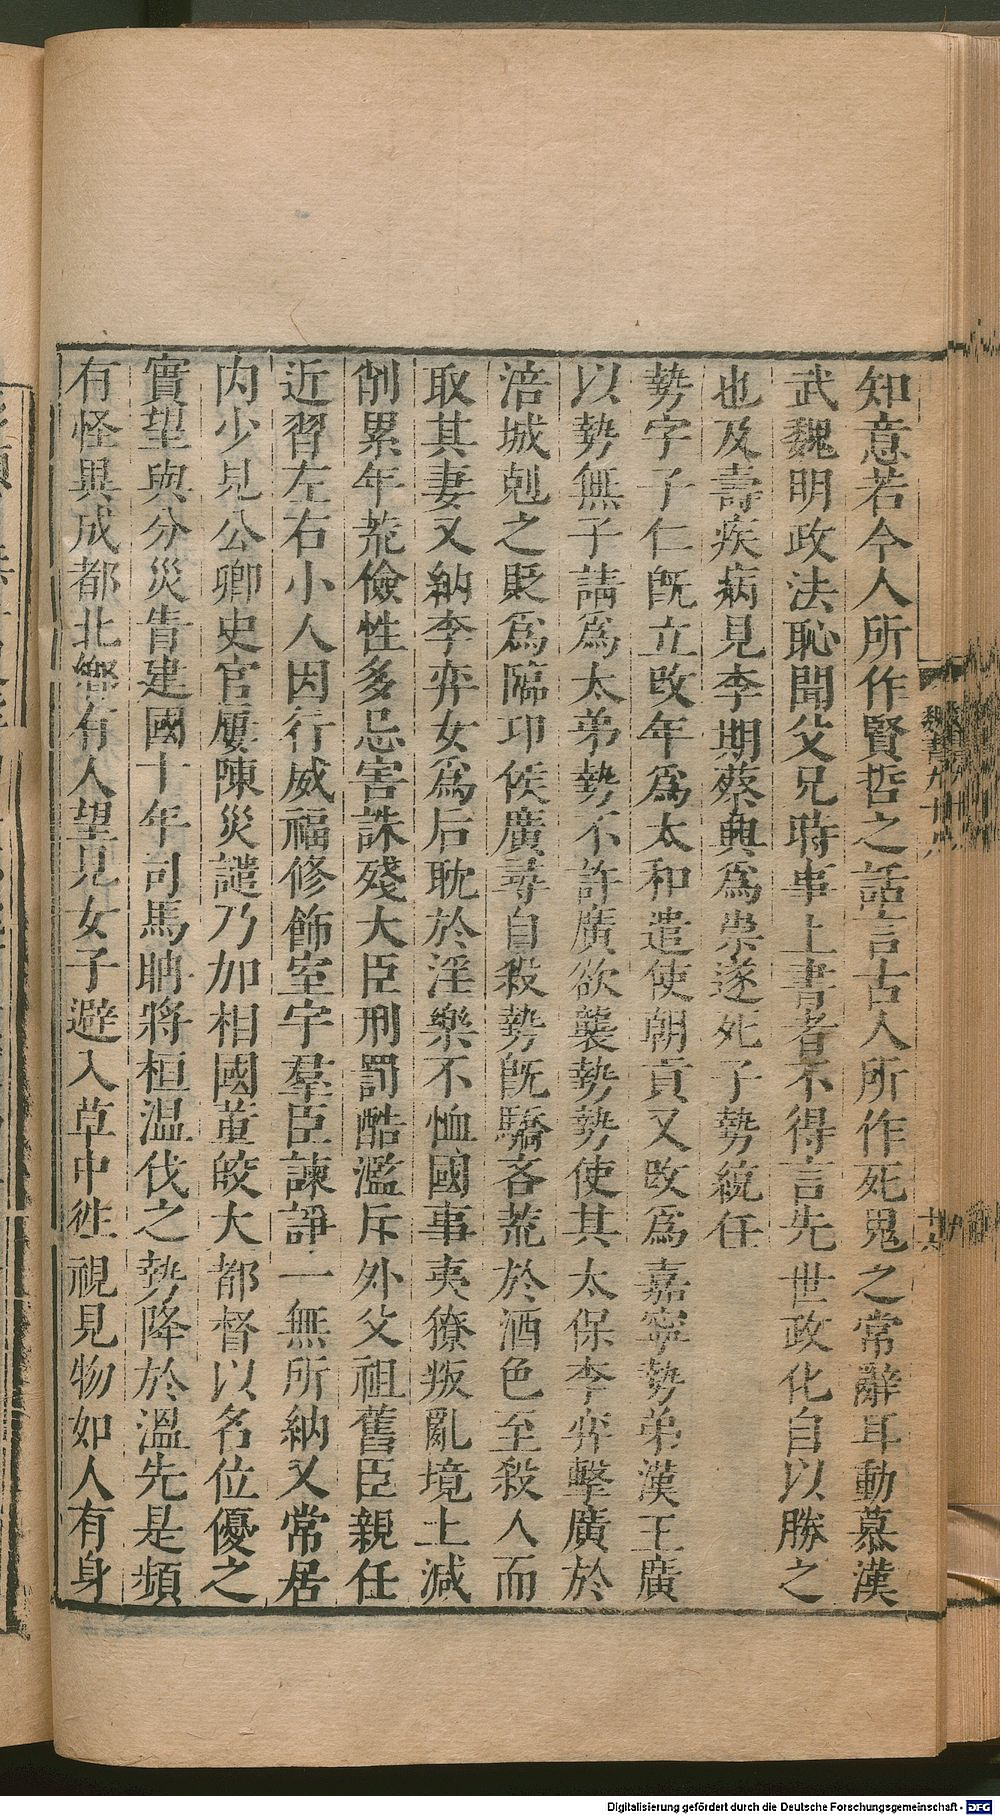 知意若今人所作賢哲之話言古人所作死鬼之常辭耳動慕漢
武魏明政法恥聞父兄時事上書者不得言先世政化自以勝之
也及壽疾病見李期蔡興爲祟遂死子勢統任
勢字子仁旣立改年爲太和遣使朝貢又改爲嘉寧勢弟漢王廣
以勢無子請爲太弟勢不許廣欲襲勢勢使其太保李弈擊廣於
涪城剋之貶爲臨邛侯廣尋自殺勢旣驕吝荒於酒色至殺人而
取其妻又納李弈女爲后耽於淫樂不恤國事夷獠叛亂境土減
削累年荒儉性多忌害誅殘大臣刑罰酷濫斥外父祖舊臣親任
近習左右小人因行威福修飾室宇羣臣諫諍一無所納又常居
内少見公卿史官屢陳災譴乃加相國董皎大都督以名位優之
實望與分災眚建國十年司馬聃將桓温伐之勢降於溫先是頻
有怪異成都北鄉有人望見女子避入草中往視見物如人有身
魏書九十六
Digitalisierung gefördert durch die Deutsche Forschungsgemeinschaft - DFG